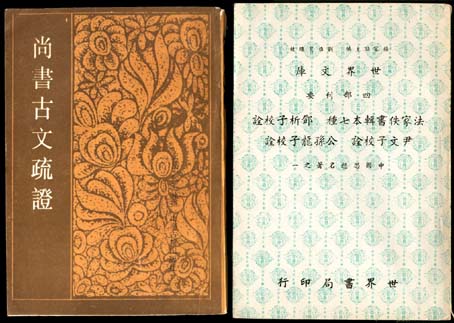 尚書古文疏證
世界文庫
四部刊要
法家佚書輯本七種 鄧析子校詮
尹文子校詮 公孫龍子校詮
中國思想名著之一
世界書局印行